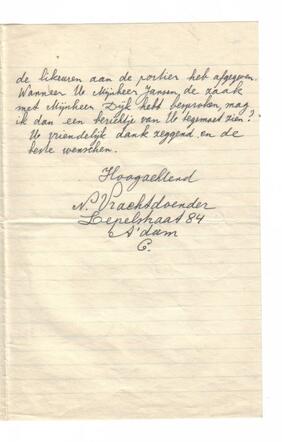 de likeuren aan de portier heb afgegeven.
Wanneer Uw Mijnheer Jansen de zaak
met Mijnheer Dijk hebt besproken, mag
ik dan een berichtje van Uw tegemoet zien?
Uw vriendelijk dank zeggend en de
beste wenschen.
Hoogachtend
N. Vrachtdoender
Lepelstraat 84
A'dam
C.